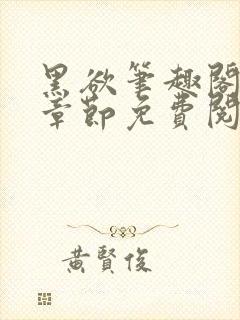 黑欲筆趣閣
章節免費閱
黃賢俊